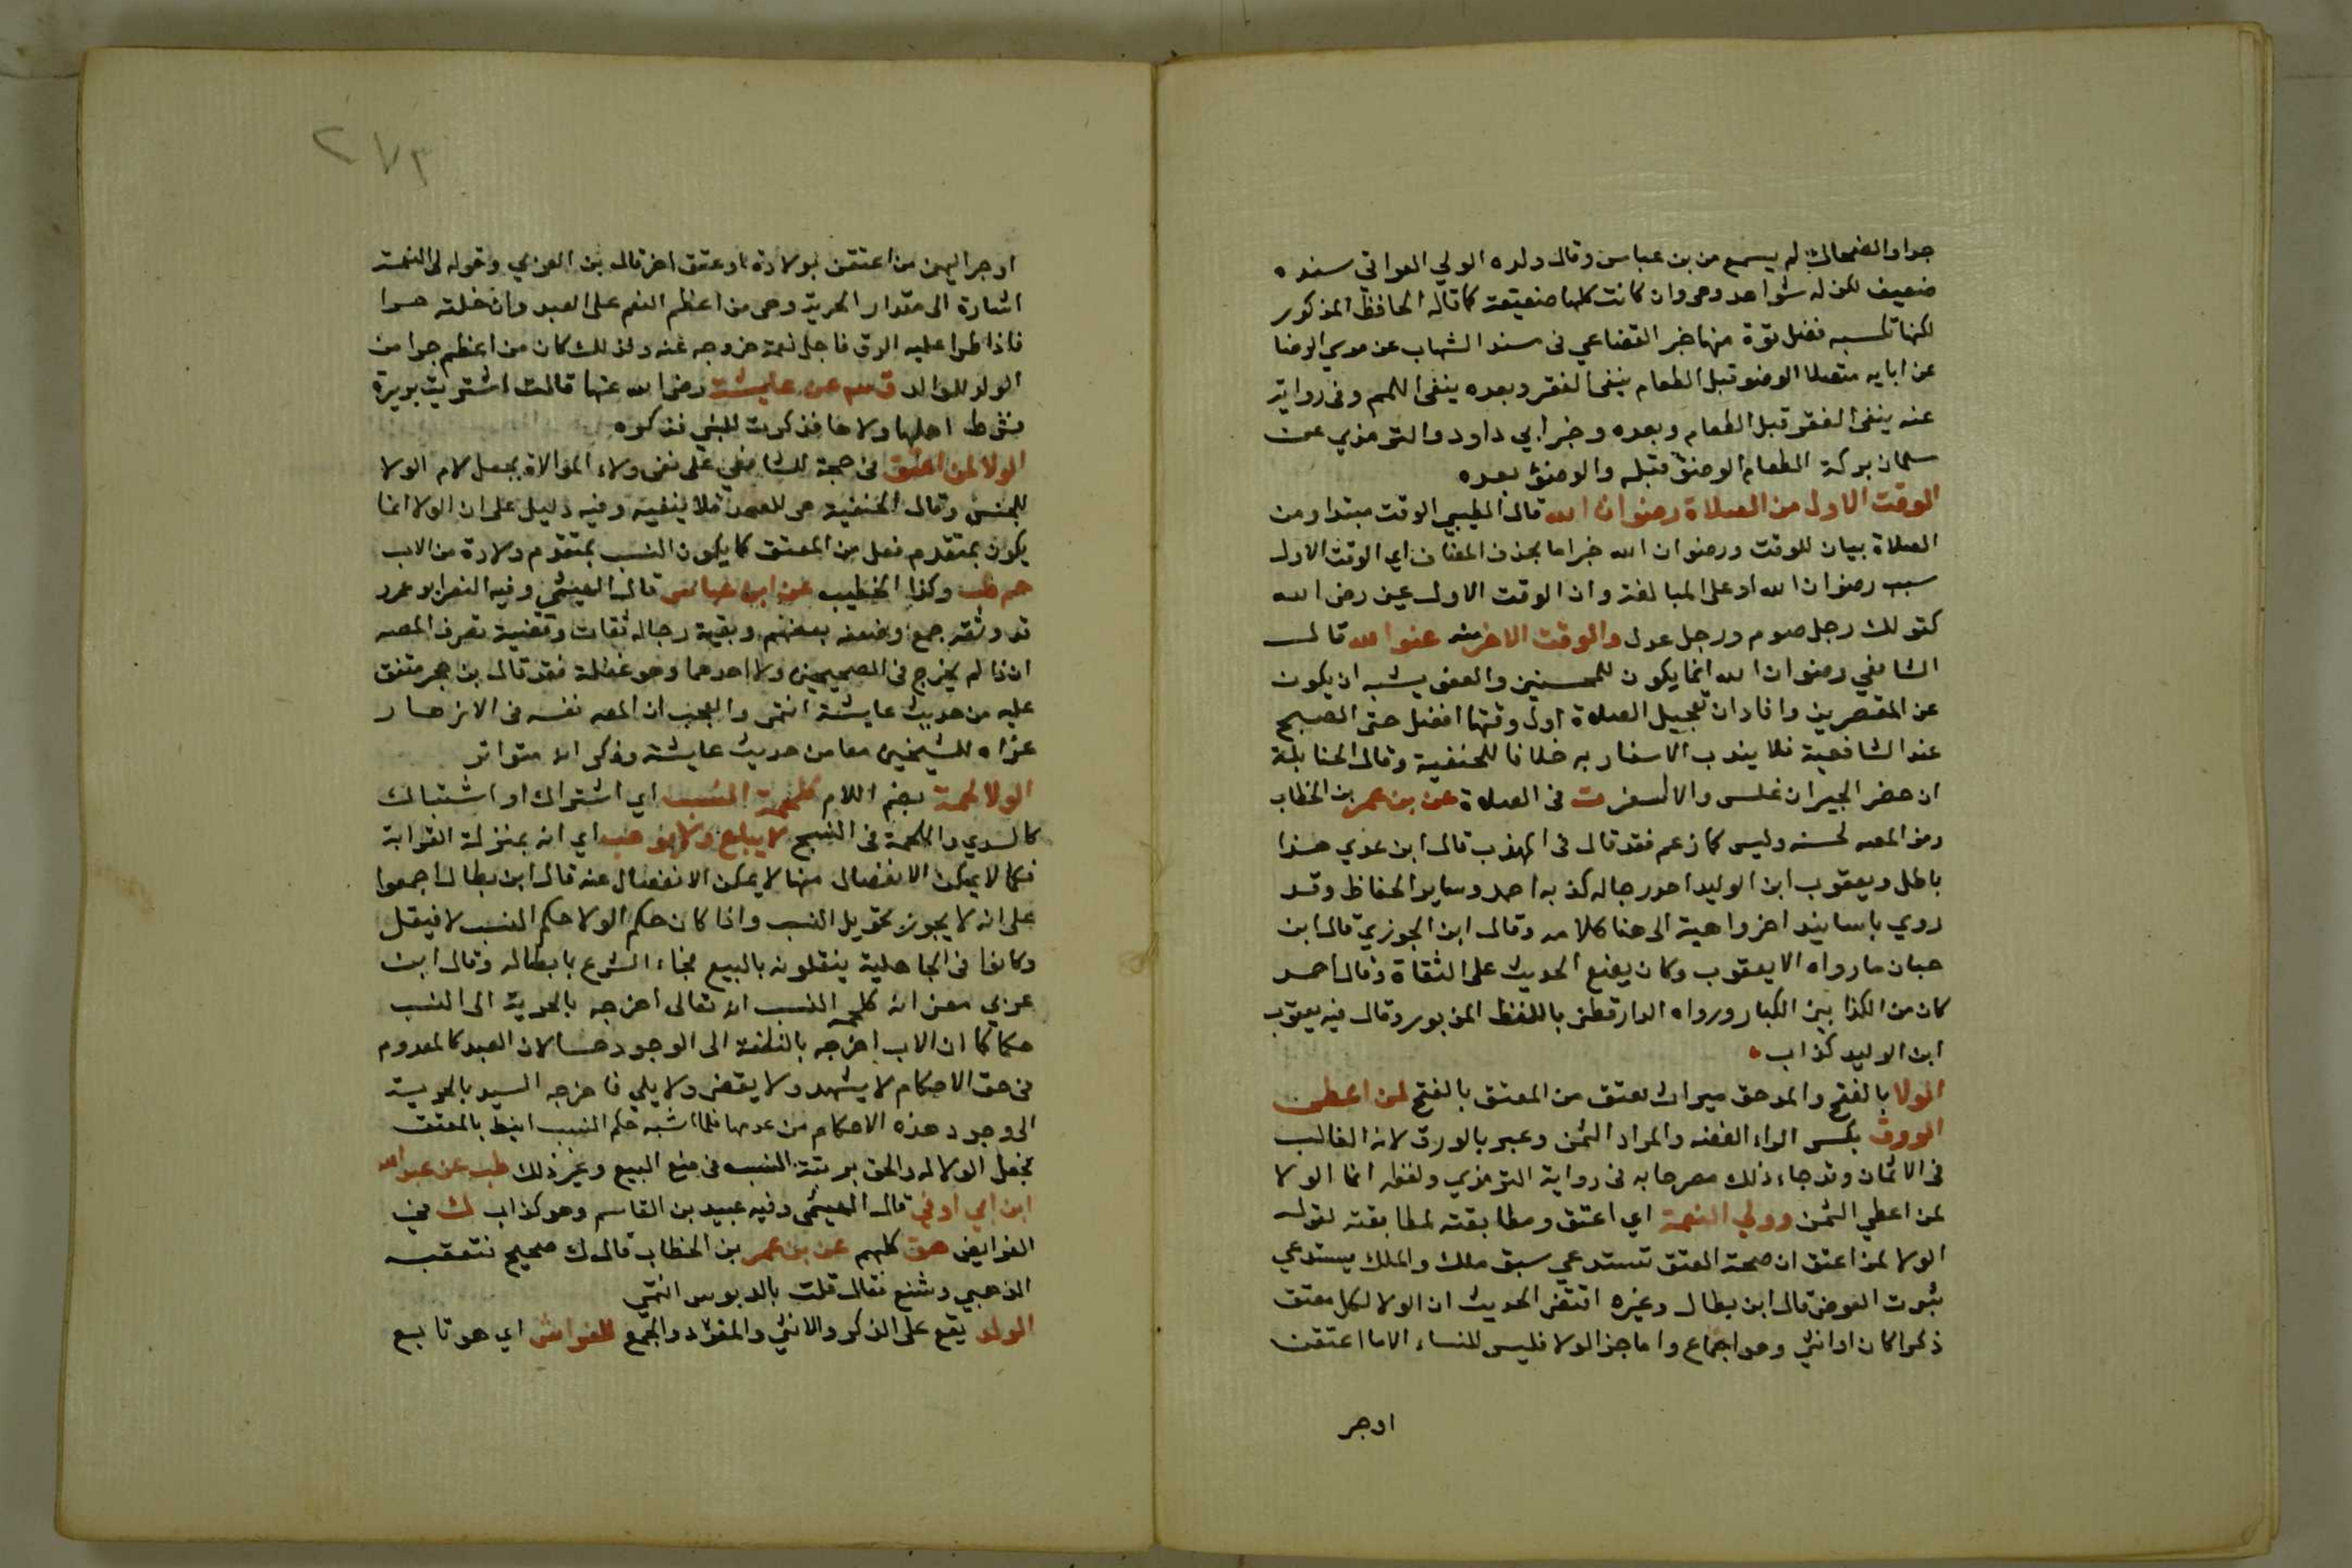 جدا والضحاك لم يسمع من بن عباس وقال ولده الولي العراقي سنده
ضعيف لكن له شواهد وهي وان كانت كلها ضعيفة كما قاله الحافظ المذكور
لكنها تكسبه فضل قوة منها خبر القضاعي في مسند الشهاب عن موسى الرضا
عن ابايه متصلا الوضو قبل الطعام ينفى الفقر وبعده ينفى اللمم وفى رواية
عنه ينفى الفقر قبل الطعام وبعده وخبر ابي داود والترمذي عن
سلمان بركة الطعام الوضؤ قبله والوضؤ بعده
الوقت الاول من الصلاة رضوان الله قال الطيبي الوقت مبتدا ومن
الصلاة بيان للوقت ورضوان الله خبر اما بحذف المضاف اي الوقت الاول
سبب رضوان الله او على المبالغة وان الوقت الاول عين رضى الله
كقولك رجل صوم ورجل عدل والوقت الاخر منه عفو الله قال
الشافعي رضوان الله انما يكون للمحسنين والعفو يشبه ان يكون
عن المقصرين وافاد ان تعجيل الصلاة اول وقتها افضل حتى الصبح
عند الشافعية فلا يندب الاسفار به خلافا للحنفية وقال الحنابلة
ان حضر الجيران غلس والا اسفر ت فى الصلاة عن بن عمر بن الخطاب
رمز المصه لحسنه وليس كما زعم فقد قال فى المهذب قال ابن عدي هذا
باطل ويعقوب ابن الوليد احد رجاله كذبه احمد وساير الحفاظ وقد
روي باسانيد اخر واهية الى هنا كلامه وقال ابن الجوزي قال ابن
حبان ما رواه الا يعقوب وكان يضع الحديث على الثقاة وقال احمد
كان من الكذابين الكبار ورواه الدارقطنى باللفظ المزبور وقال فيه يعقوب
ابن الوليد كذاب
الولا بالفتح والمد حق ميراث لعتق من المعتق بالفتح لمن اعطى
الورق بكسر الراء الفضه والمراد الثمن وعبر بالورق لانه الغالب
فى الاثمان وقد جاء ذلك مصرحا به فى رواية الترمذي ولفظه انما الولا
لمن اعطي الثمن وولي النعمة اي اعتق ومطابقته لمطابقته لقوله
الولا لمن اعتق ان صحة العتق تستدعي سبق ملك والملك يستدعي
ثبوت العوض قال ابن بطال وغيره اقتضى الحديث ان الولا لكل معتق
ذكرا كان او انثى وهو اجماع واما جر الولا فليس للنساء الا ما اعتقن
او جر
٢٧٣
او جر اليهن من اعتقن بولادة او عتق اخر قال بن العربي وقوله لى النعمة
اشارة الى مقدار الحرية وهى من اعظم النعم على العبد وان خلته حرا
فاذا طرا عليه الرق فاجل نعمة خروجه عنه ولذلك كان من اعظم جزا من
الولد للوالد ق عن عايشة رضى الله عنها قالت اشتريت بريرة
فشرط اهلها ولاها فذكرت للنبي فذكره
الولا لمن اعتق فى حجة للشافعي على نفى ولاء الموالاة بجعل لام الولا
للجنس وقال الحنفية هى للعهد فلا ينفيه وفيه دليل على ان الولا انما
يكون بمتقدم فعل من المعتق كما يكون النسب بمتقدم ولادة من الاب
حم طب وكذا الخطيب عن ابن عباس قال الهيثمي وفيه النضر ابو عمر
قد وثقه جمع وضعفه بعضهم وبقية رجاله ثقات وقضية تصرف المصه
ان ذا لم يخرج فى الصحيحين ولا احدهما وهو غفلة فقد قال بن حجر متفق
عليه من حديث عايشة انتهى والعجب ان المصه نفسه فى الازهار
عزاه للشيخين معا من حديث عايشة وذكر انه متواتر
الولا لحمة بضم اللام كلحمة النسب اي اشتراك او اشتباك
كالسدي واللحمة فى النسج لا يباع ولا يوهب اي انه بمنزلة القرابة
فكما لا يمكن الانفصال منها لا يمكن الانفصال عنه قال ابن بطال اجمعوا
على انه لا يجوز تحويل النسب واذا كان حكم الولا حكم النسب لا فيقل
وكانوا فى الجاهلية ينقلونه بالبيع فجاء الشرع بابطاله وقال ابن
عربي معنى انه كلحمة النسب ان تعالى اخرجه بالحرية الى النسب
حكما كما ان الاب اخرجه بالنطفة الى الوجود حسا لان العبد كالمعدوم
فى حق الاحكام لا يشهد ولا يقضى ولا يلي فاخرجه السيد بالحرية
الى وجود هذه الاحكام من عدمها فلما اشبه حكم النسب انيط بالمعتق
فجعل الولا له والحق برتبة النسب فى منع البيع وغير ذلك طب عن عبد الله
ابن ابي اوفى قال الهيثمى وفيه عبيد بن القاسم وهو كذاب ك في
الفرايض هق كلهم عن بن عمر بن الخطاب قال ك صحيح فتعقبه
الذهبي وشنع فقال قلت بالدبوس انتهى
الولد يقع على الذكر والانثى والمفرد والجمع للفراش اي هو تابع